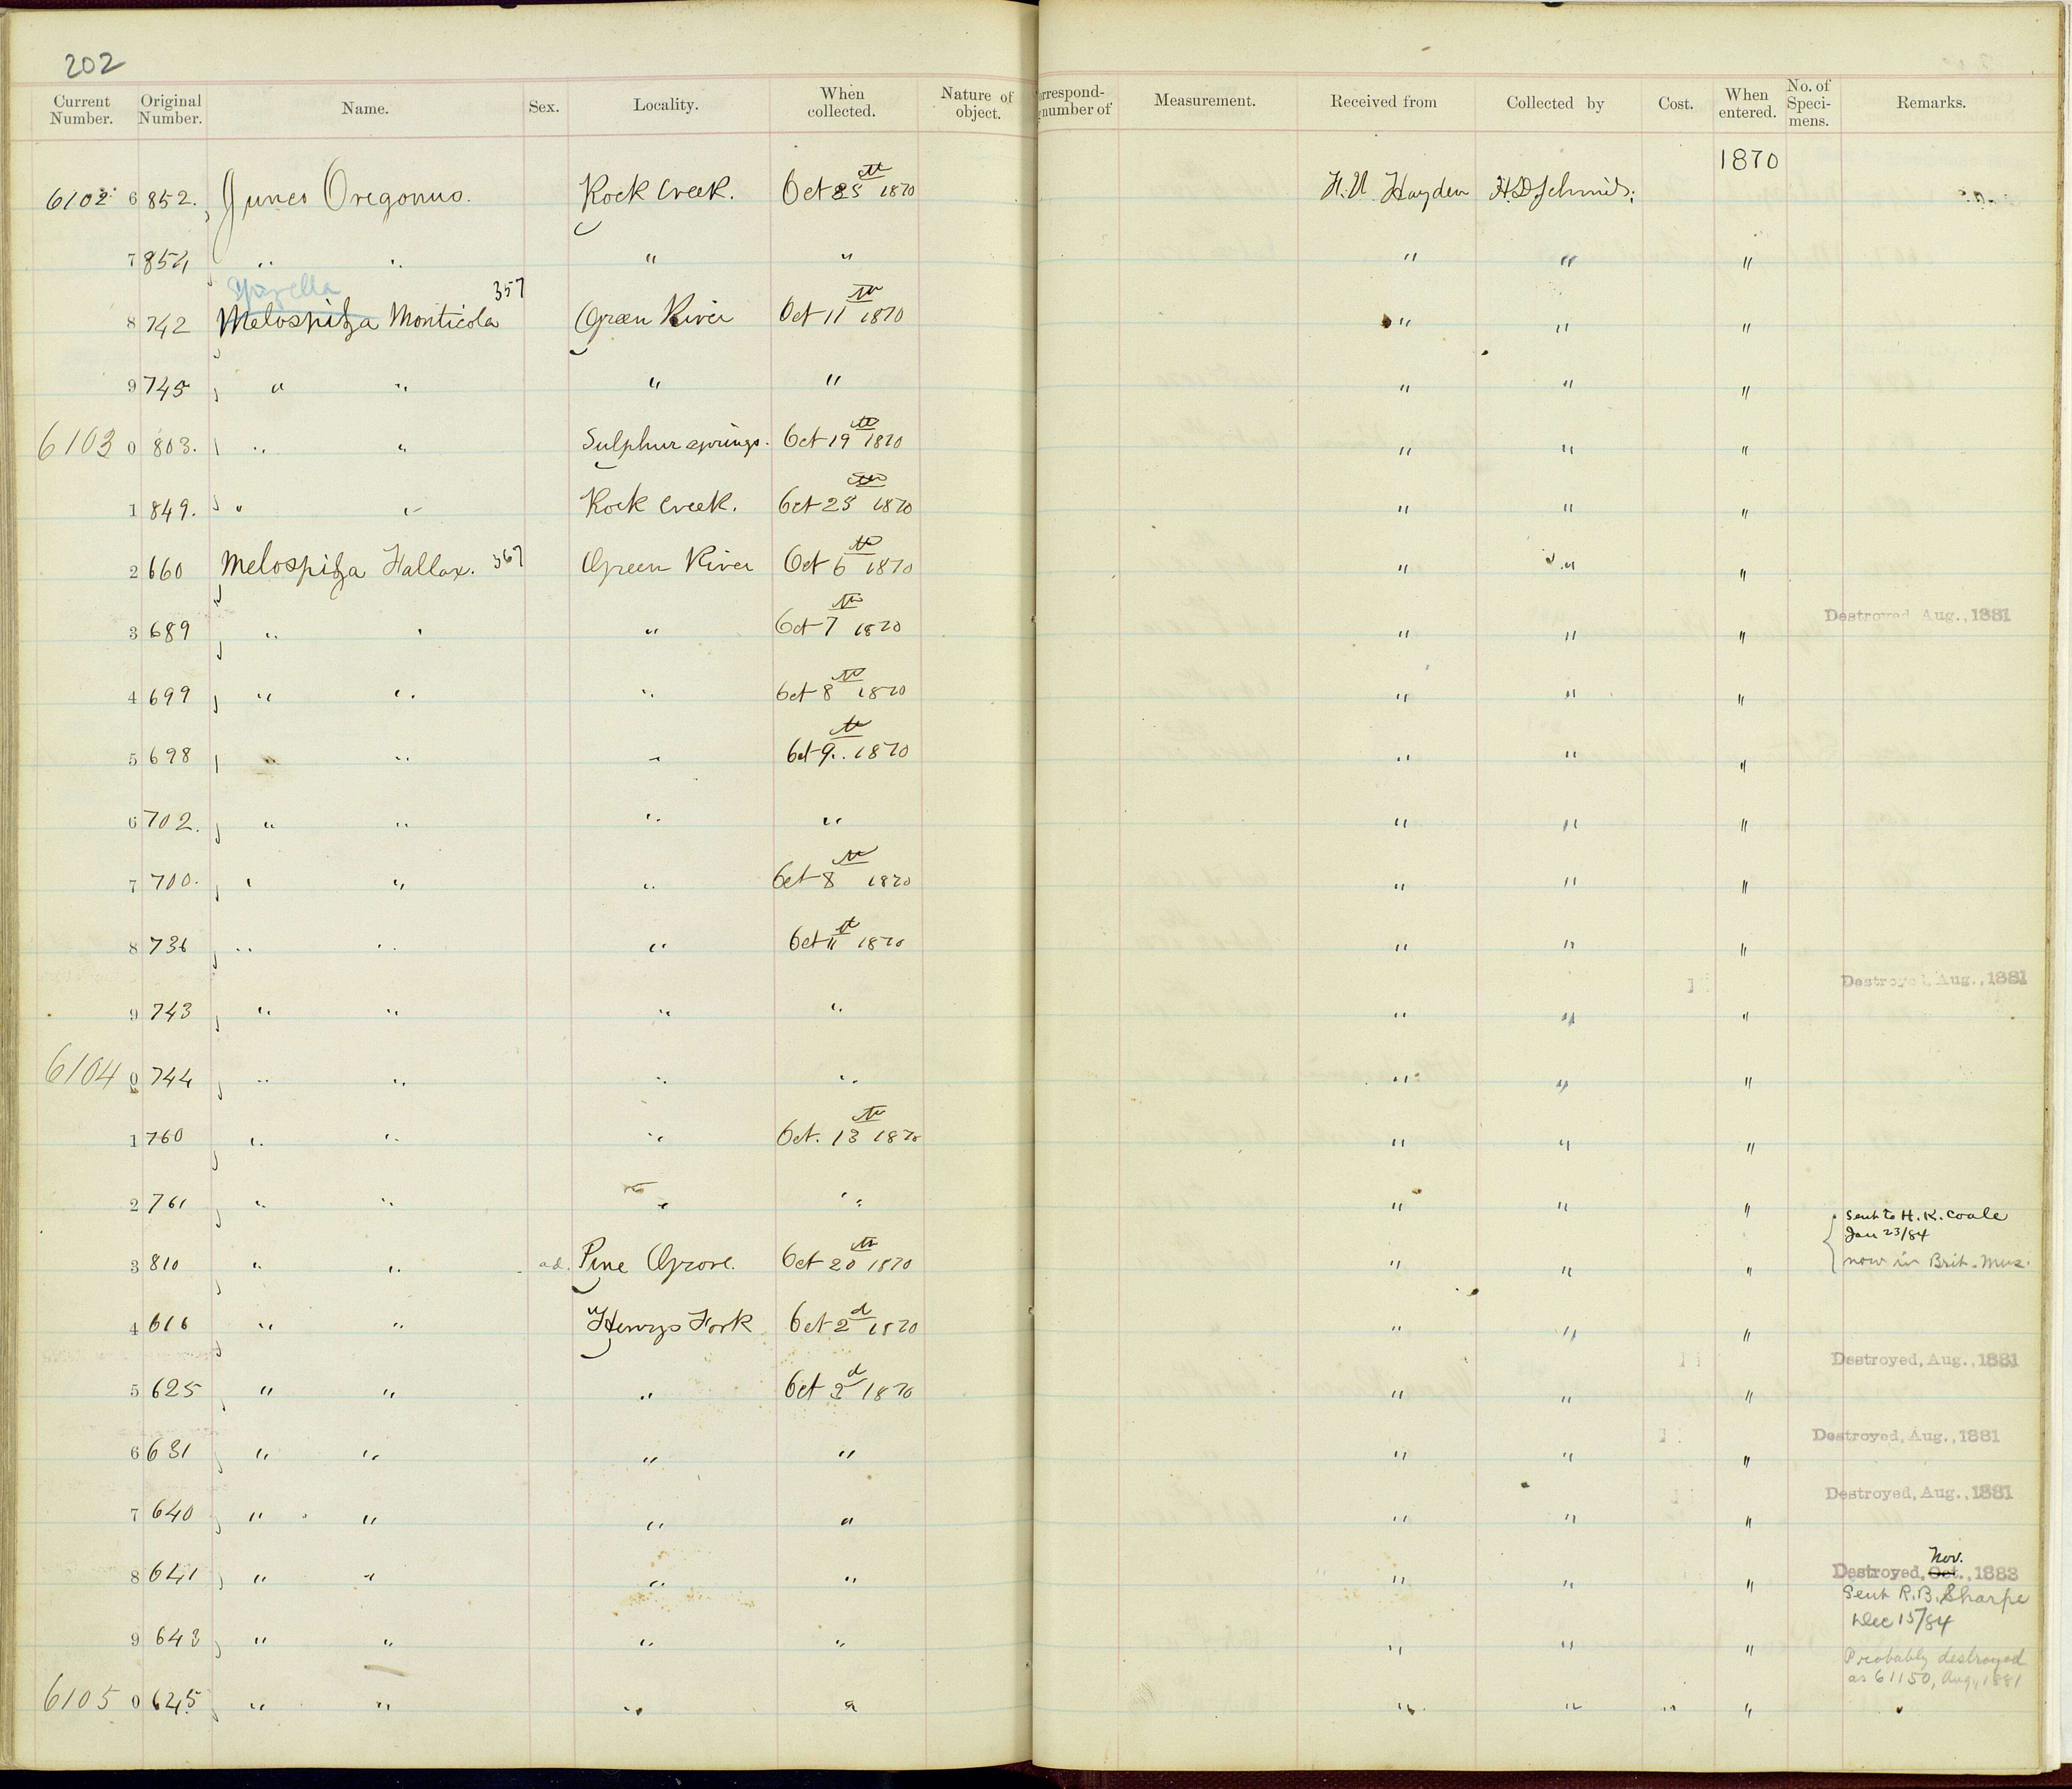 202
Current Number. Original Number. Name. Sex. Locality. When collected. Nature of object. orrespond- number of Measurement. Received from Collected by Cost. When entered. No. of Speci- mens. Remarks.
1870
6102 6 852. Junco Oregonus. Rock Creek. Oct 25th 1870 F. V. Hayden H.D. Schmidt
7 854 " " " " " " "
Spizella
8 742 Melospiza Monticola 357 Green River Oct 11th 1870 " " "
9 745 " " " " " " "
6103 0 803. " " Sulphur springs. Oct 19th 1870 " " "
1 849. " " Rock Creek. Oct 25th 1870 " " "
2 660 Melospiza Fallax. 367 Green River Oct 6th 1870 " " "
Destroyed Aug., 1881
3 689 " " " Oct 7th 1870 " " "
4 699 " " " Oct 8th 1870 " " "
5 698 " " " Oct 9th 1870 " " "
6 702. " " " " " " "
7 700. " " " Oct 8th 1870 " " "
8 736 " " " Oct 11th 1870 " " "
Destroyed, Aug., 1881
9 743 " " " " " " "
6104 0 744 " " " " " " "
1 760 " " " Oct. 13th 1870 " " "
2 761 " " " " " " "
Sent to H. K. Coale
Jan 23/84
3 810 " " ad. Pine Grove. Oct 20th 1870 " " " now in Brit. Mus.
4 616 " " Henrys Fork Oct 2d 1870 " " "
Destroyed, Aug., 1881
5 625 " " " Oct 2d 1870 " " "
Destroyed, Aug., 1881
6 631 " " " " " " "
Destroyed, Aug., 1881
7 640 " " " " " " "
Nov.
Destroyed, Oct., 1883
8 641 " " " " " " "
Sent R. B. Sharpe
Dec 15/84
9 643 " " " " " " "
Probably destroyed
as 61150, Aug, 1881
6105 0 645 " " " " " " " "